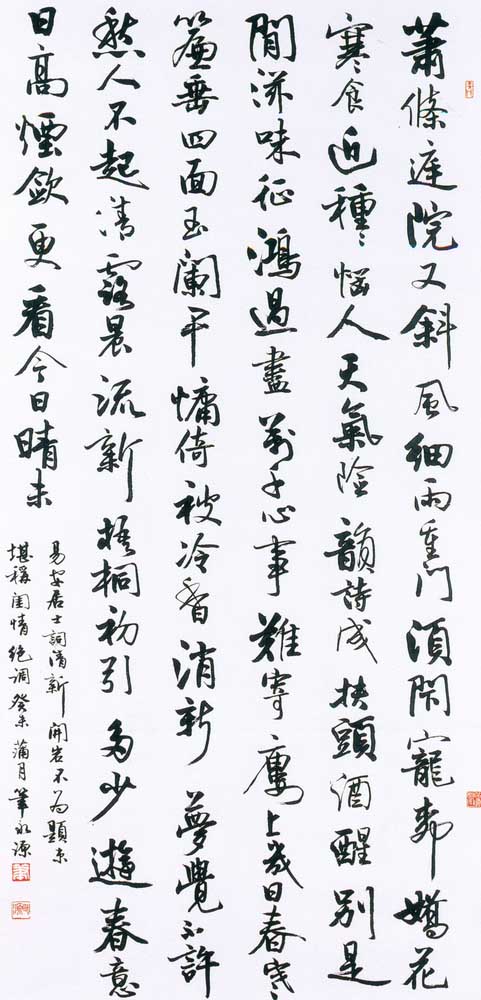 蕭條庭院又斜風細雨重門須閉寵柳嬌花
寒食近種種惱人天氣險韻詩成扶頭酒醒別是
閒滋味征鴻過盡萬千心事難寄樓上幾日春寒
簾垂四面玉闌干慵倚被冷香消新夢覺不許
愁人不起清露晨流新梧桐初引多少遊春意
日高煙斂更看今日晴未
易安居士詞清新開宕不為題束
堪稱閨情絕調癸未蒲月筆永源